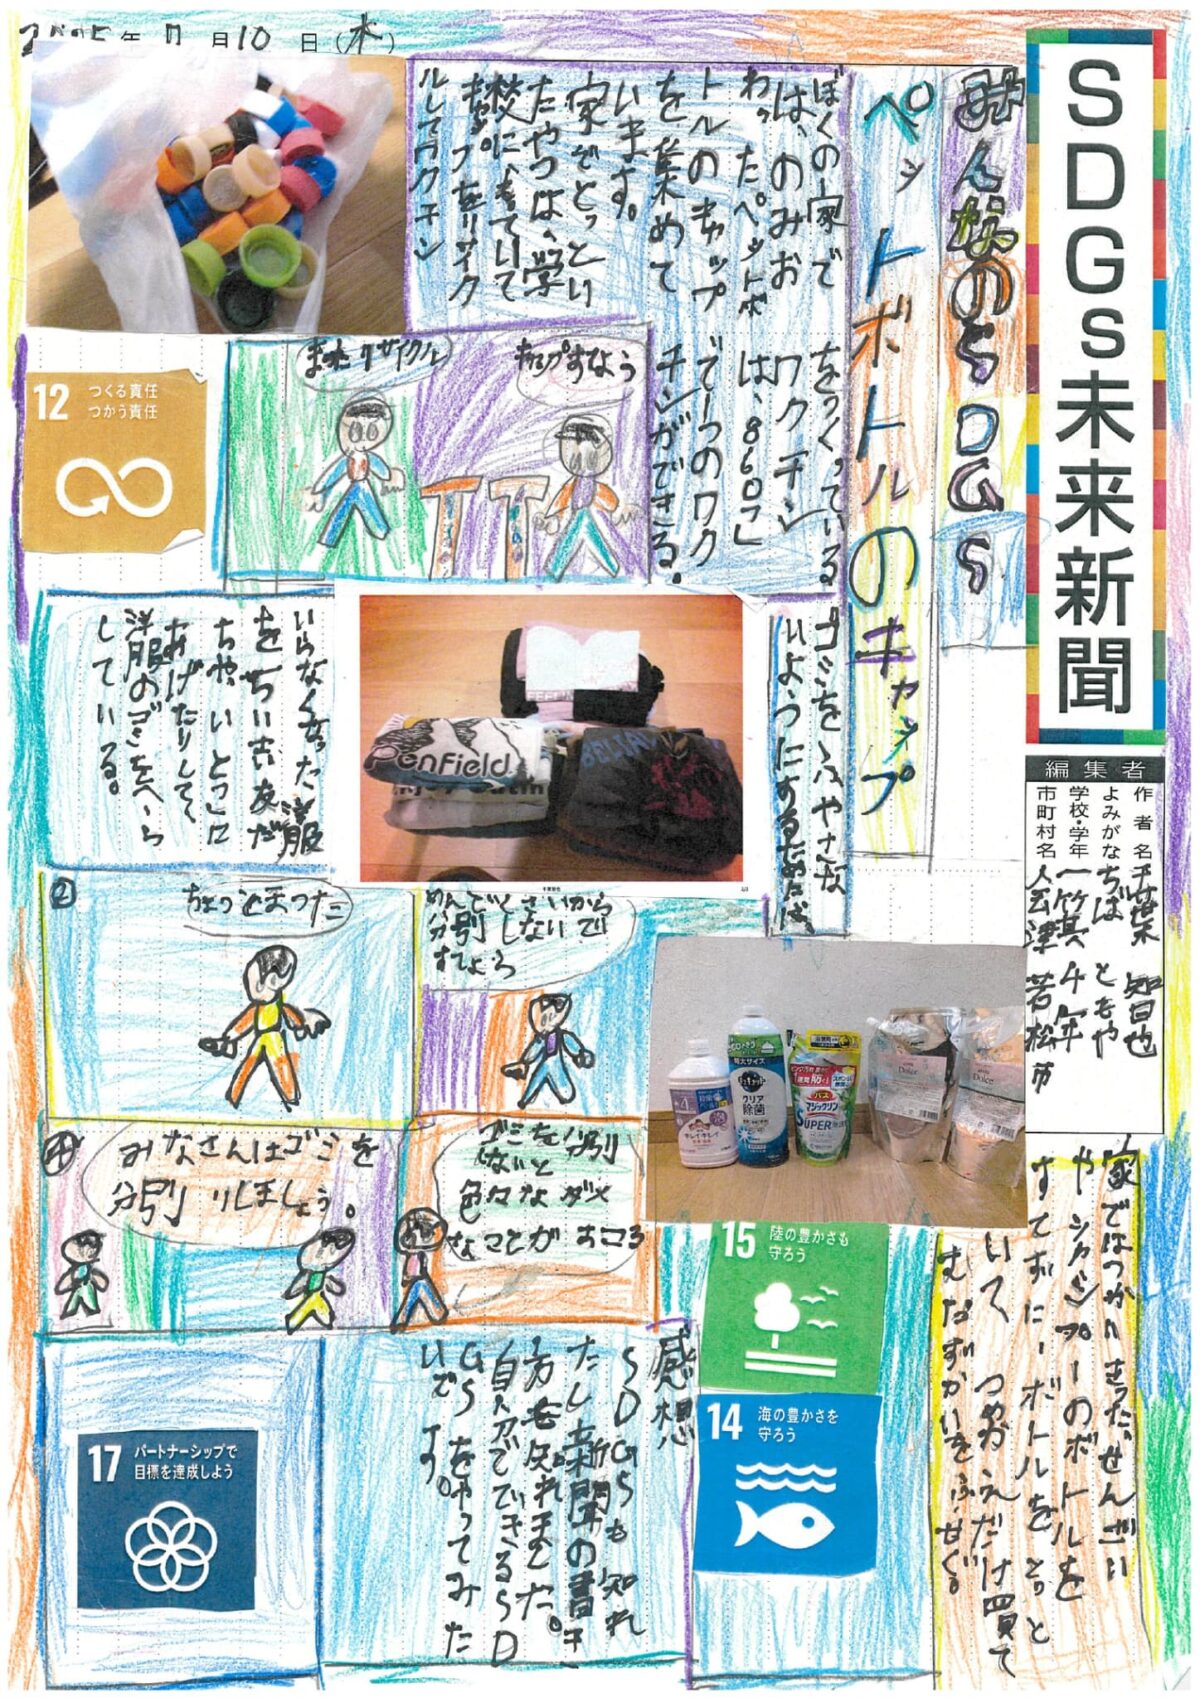 2025年 月10日(木)
SDGs未来新聞
編集者
作者名 千葉 智也
よみがな ちば ともや
学校・学年 一箕 4年
市町村名 会津若松市
みんなのSDGS
ペットボトルのキャップ
ぼくの家で
は、のみお
わったペットボ
トルのキャップ
を集めて
います。
家でとってい
たやつは、学
校にもっていて
キャップをリサイク
ルしてワクチン
をつくっている
ワクチン
は、860コ
で一つのワク
チンができる。
キャップすてよう
まった リサイクル
12 つくる責任
つかう責任
ゴミをふやさな
いようにするためには、
いらなくなった洋服
を小ちいお友だ
ちや、いとこに
あげたりして、
洋服のゴミをへら
している。
Penfield
めんどくさいから
分別しないで
すてよう
②
ちょっとまった
ゴミを分別
しないと
色々なダメ
なことがおこる
④
みなさんはゴミを
分別しましょう。
キュキュット
クリア
除菌
キレイキレイ
バス
マジックリン
SUPER
Dolce
Dolce
家ではつかいきったせんざい
やシャンプーのボトルを
すてずに、ボトルをとっと
いて、つめかえだけ買て
むだずかいをふせぐ。
15 陸の豊かさも
守ろう
14 海の豊かさを
守ろう
感想
SDGSも知れ
たし新聞の書き
方も知れました。
自分でできるSD
GSをやってみた
いです。
17 パートナーシップで
目標を達成しよう